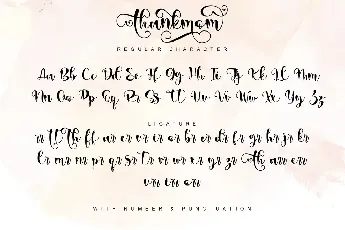 thankmom
REGULAR CHARACTER
Aa Bb Cc Dd Ee Ff Gg Hh Ii Jj Kk Ll Mm
Nn Oo Pp Qq Rr Ss Tt Uu Vv Ww Xx Yy Zz
LIGATURE
rr tt th ff ar er vr ir or br cr dr fr gr hr jr kr
lr mr nr pr qr sr tr vr wr xr yr zr Th arr err
WITH NUMBER & PUNCTUATION